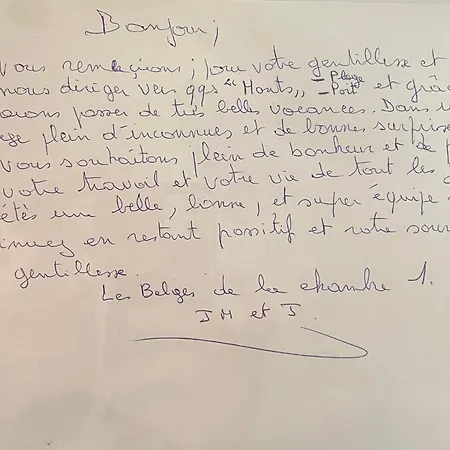 Bonjour;
vous remerçions; pour votre gentillesse et
nous diriger vers qqs "Monts,, - Plage - Port et grâc
avons passer de très belles vacances. Dans u
ège plein d'inconnues et de bonnes surprise
vous souhaitons plein de bonheur et de p
votre travail et votre vie de tout les
étés une belle, bonne, et super équipe
inuez en restant possitif et votre sour
gentillesse.
Les Belges de la chambre 1.
J H et J.